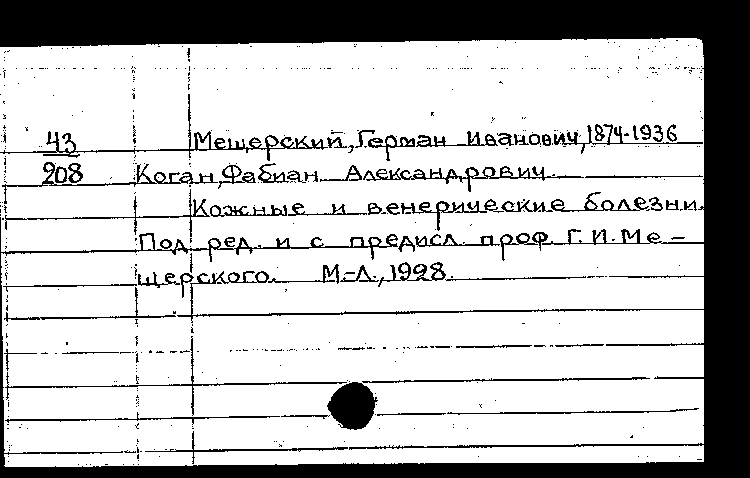 43 Мещерский, Герман Иванович, 1874-1936
208 Коган, Фабиан Александрович.
Кожные и венерические болезни.
Под ред. и с предисл. проф. Г. И. Ме-
щерского. М.-Л., 1928.